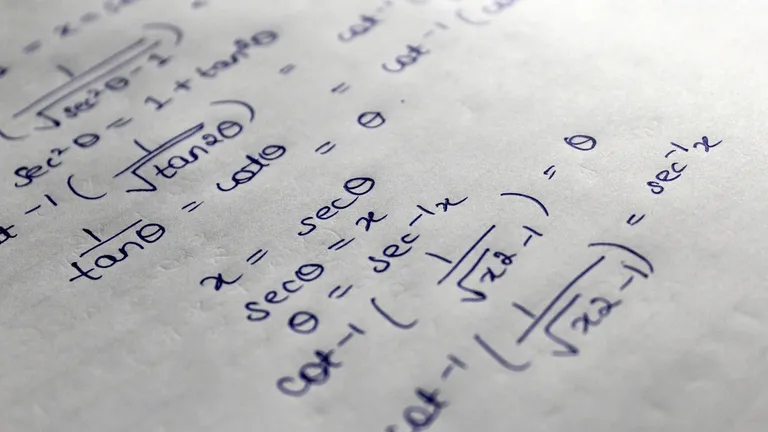 = x = sec
( 1/√sec²θ - 1 ) = cot⁻¹
sec²θ = 1 + tan²θ
-1 ( 1/√tan2θ ) = cot⁻¹ (
1/tanθ = cotθ = θ
x = secθ
secθ = x
θ = sec⁻¹x
cot⁻¹ ( 1/√x2-1 ) = θ
cot⁻¹ ( 1/√x2-1 ) = sec⁻¹x